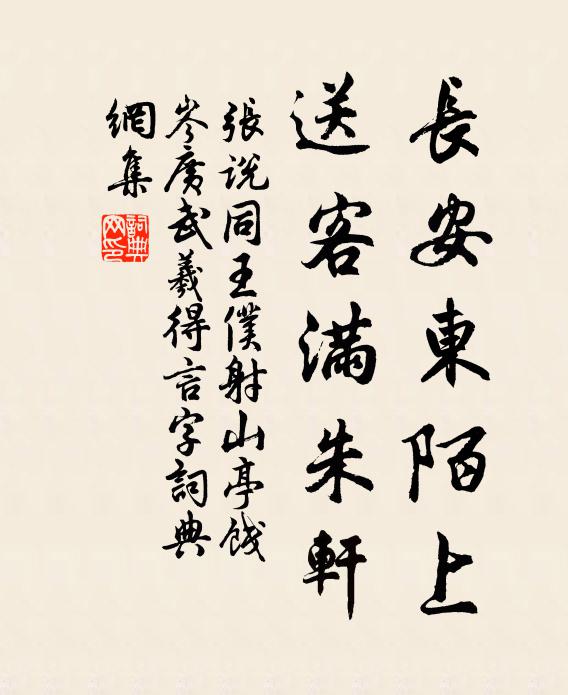 長安東陌上
送客滿朱軒
張說同王僕射山亭餞
岑廣武羲得言字詞典
網集
詞典
网印